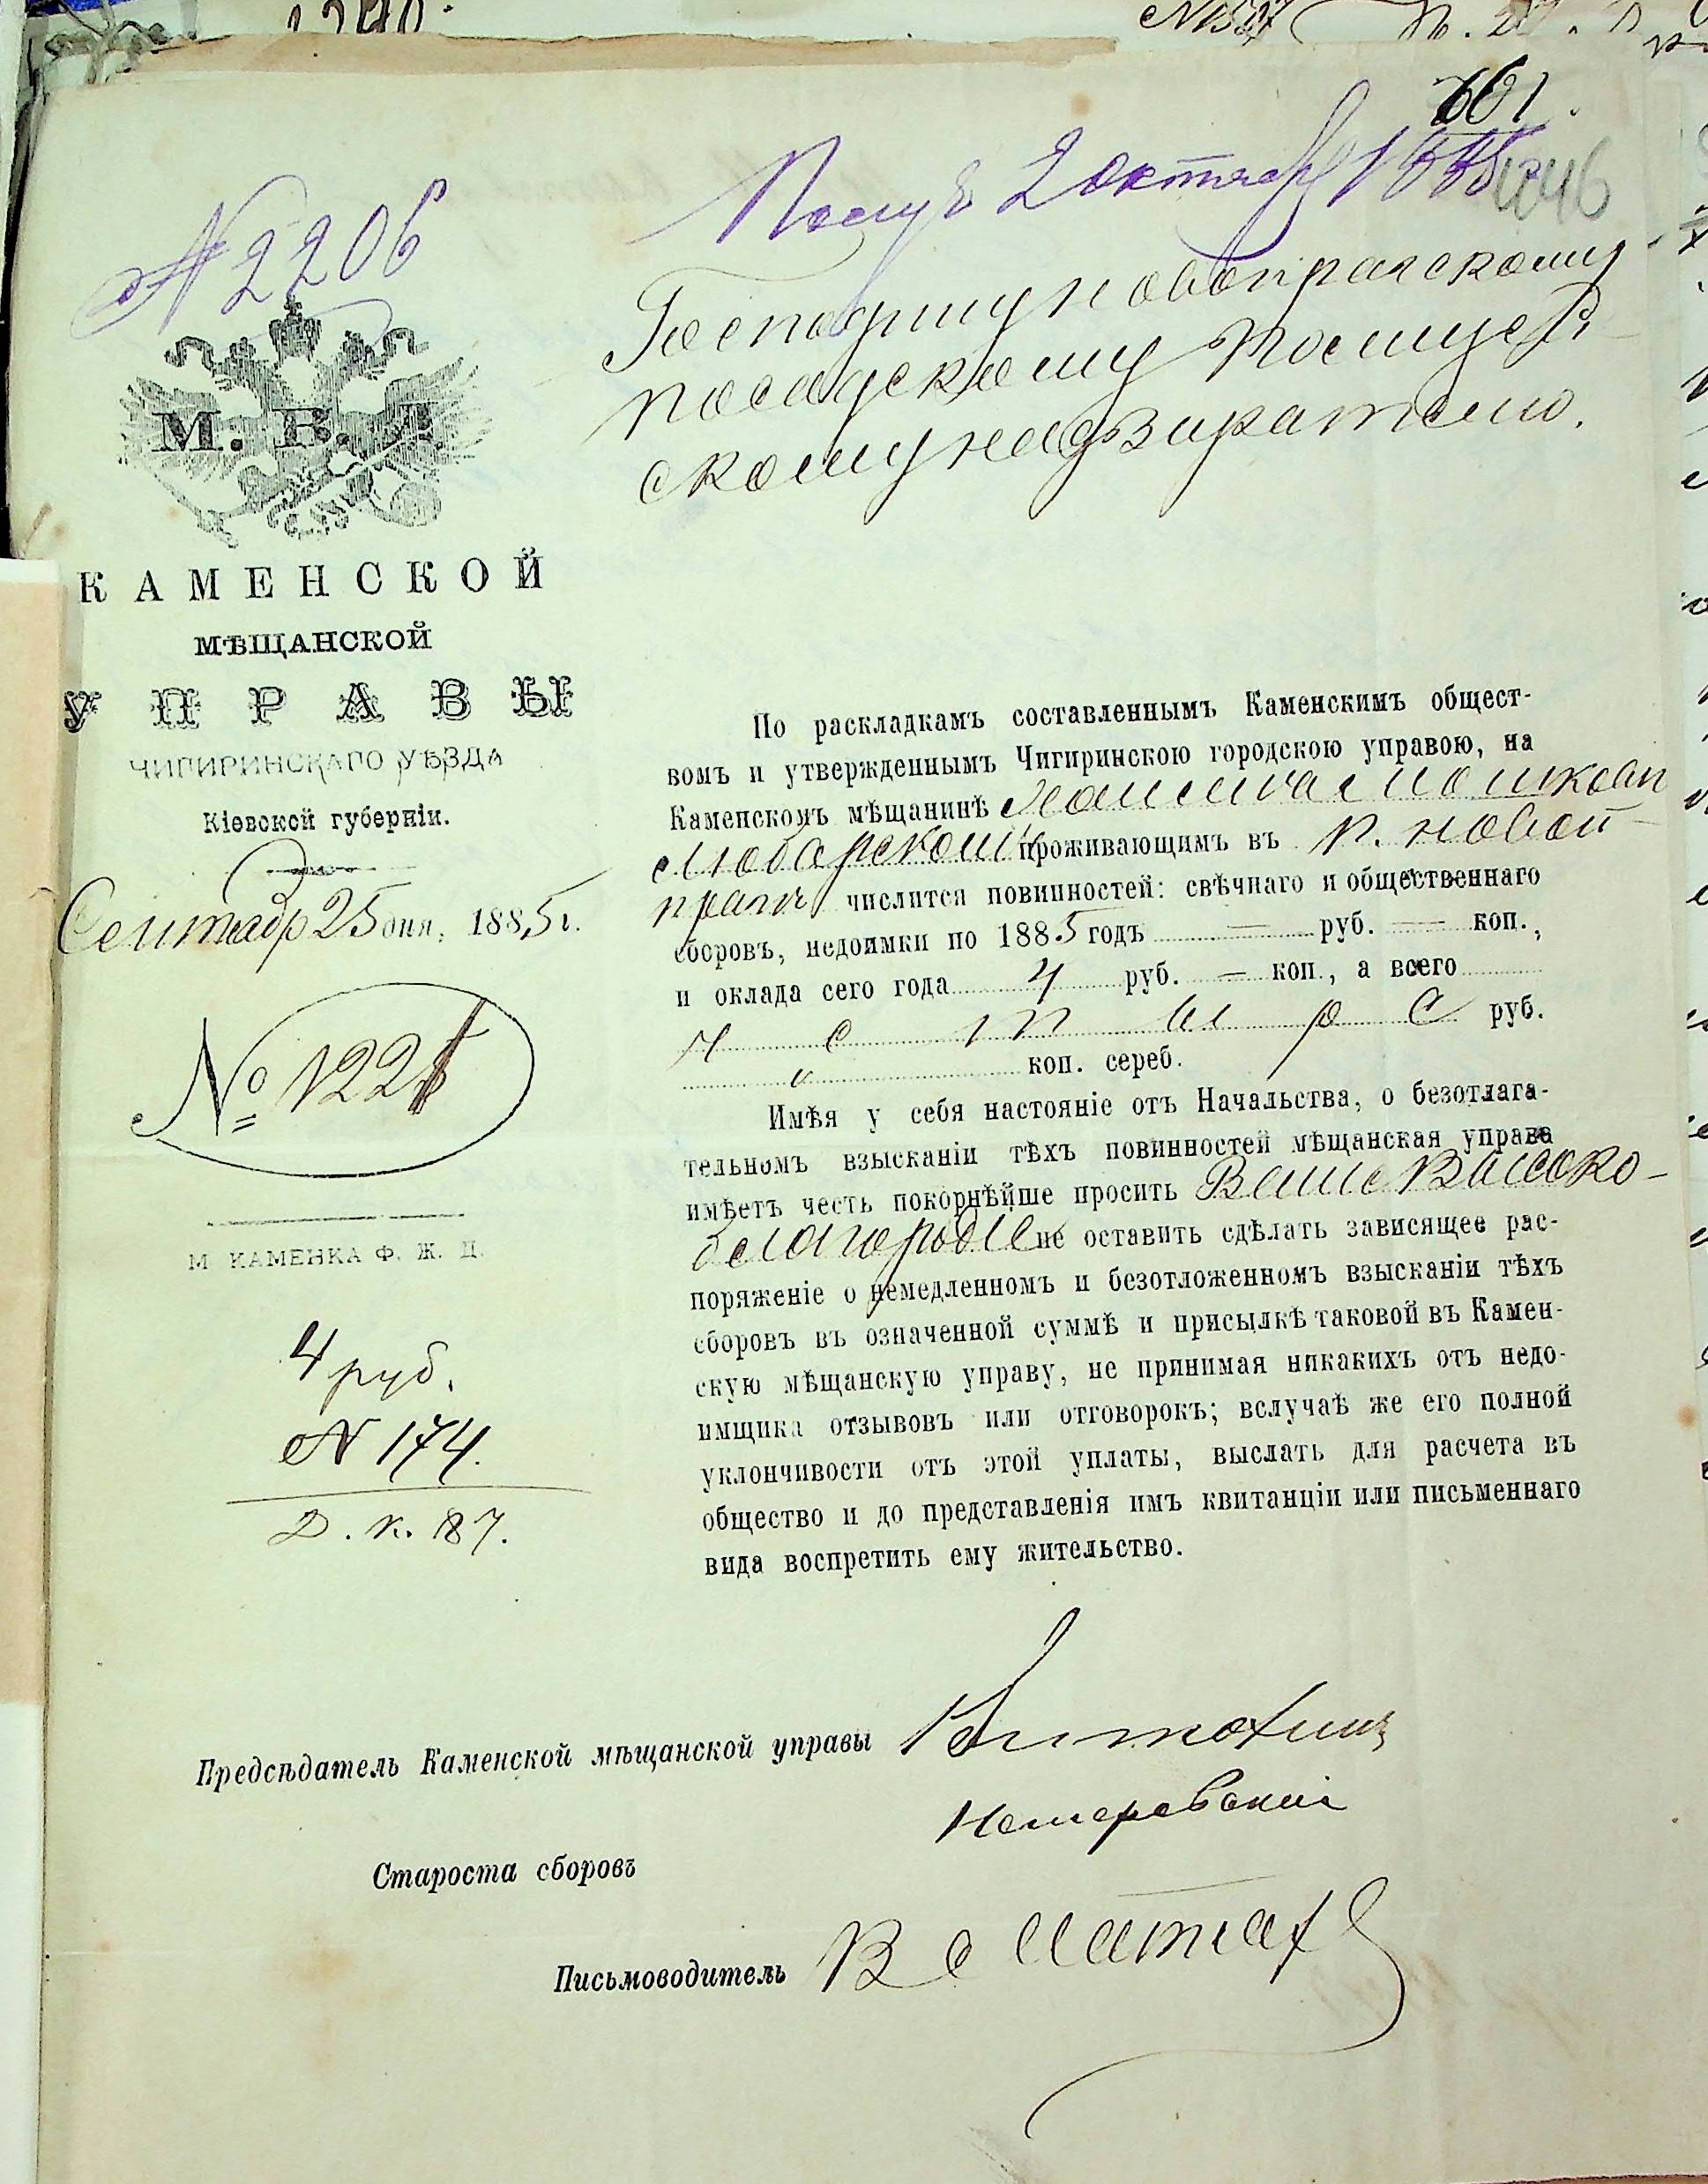 601.
Получ 2 октября 1885
1046
№ 2206
Господину Новопрагскому
посадскому Полицей-
скому надзирателю.
М. В. Д.
КАМЕНСКОЙ
МѢЩАНСКОЙ
УПРАВЫ
ЧИГИРИНСКАГО УѢЗДА
Кіевской губерніи.
Сентябр 25 дня, 1885 г.
№ 1221
М. КАМЕНКА Ф. Ж. Д.
4 руб.
№ 174.
Д. к. 87.
По раскладкамъ составленнымъ Каменскимъ общест-
вомъ и утвержденнымъ Чигиринскою городскою управою, на
Каменскомъ мѣщанинѣ
Любарскомъ проживающимъ въ п. Новой
Праги числится повинностей: свѣчнаго и общественнаго
сборовъ, недоимки по 1885 годъ — руб. — коп.,
и оклада сего года 4 руб. — коп., а всего
четыре руб.
" коп. сереб.
Имѣя у себя настояніе отъ Начальства, о безотлага-
тельномъ взысканіи тѣхъ повинностей мѣщанская управа
имѣетъ честь покорнѣйше просить Ваше Высоко-
благородіе не оставить сдѣлать зависящее рас-
поряженіе о немедленномъ и безотложенномъ взысканіи тѣхъ
сборовъ въ означенной суммѣ и присылкѣ таковой въ Камен-
скую мѣщанскую управу, не принимая никакихъ отъ недо-
имщика отзывовъ или отговорокъ; вслучаѣ же его полной
уклончивости отъ этой уплаты, выслать для расчета въ
общество и до представленія имъ квитанціи или письменнаго
вида воспретить ему жительство.
Предсѣдатель Каменской мѣщанской управы
Староста сборовъ
Письмоводитель